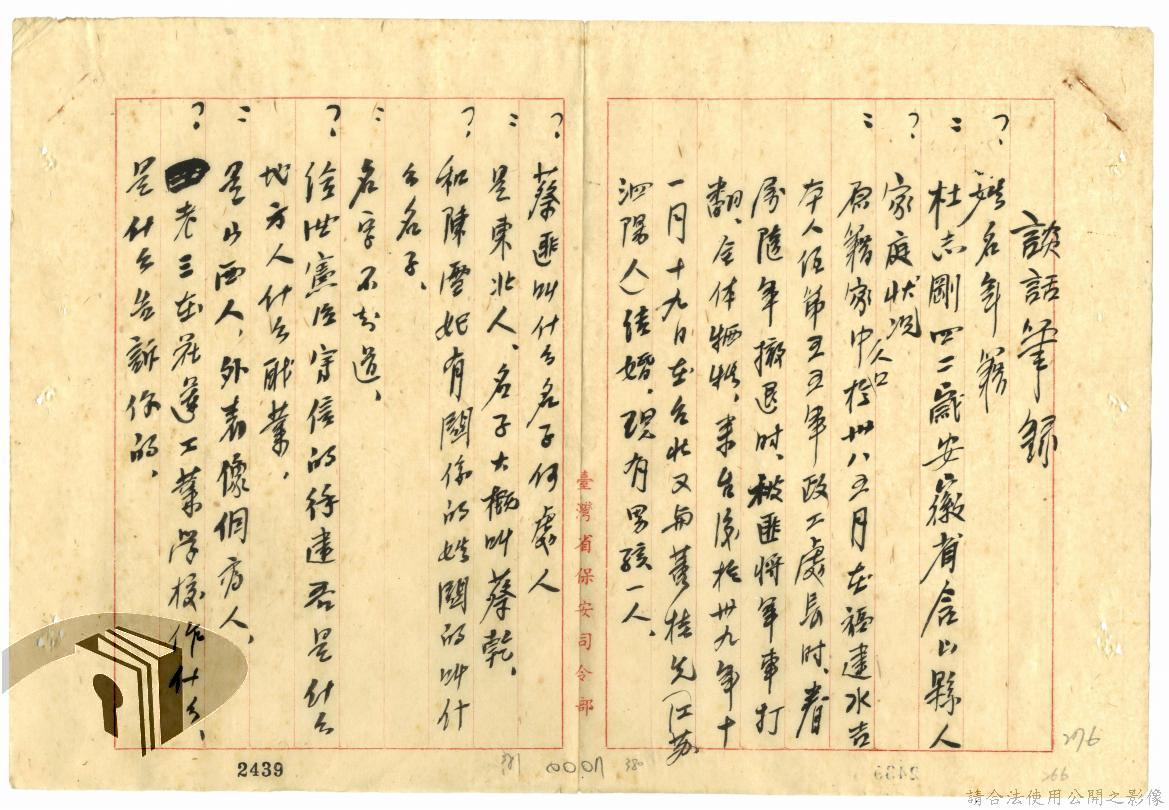 談話筆錄
？ 姓名年籍
： 杜志剛四二歲安徽省含山縣人
？ 家庭狀況
： 原籍家中人口於卅八五月在福建水吉
本人任第五五軍政工處長時、眷
屬隨軍撤退時、被匪將軍車打
翻、全体牺牲、来台後於卅九年十
一月十九日在台北又与董桂先（江苏
泗陽人）结婚、现有男孩一人、
臺灣省保安司令部
？ 蔡匪叫什么名子何處人
： 是東北人、名子大概叫蔡乾、
？ 和陳澤妃有關係的姓関的叫什
么名子、
： 名字不知道、
？ 给洪憲臣寄信的徐建君是什么
地方人什么职業、
： 是山西人、外表像個商人、
？ 老三在花蓮工業学校作什么、
是什么告訴你的、
2439
381
00007
380
2439
276
266
請合法使用公開之影像